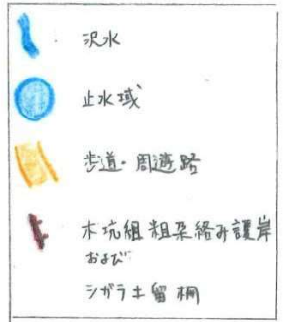 沢水
止水域
歩道・周遊路
木坑組粗朶絡み護岸
および
シガラ土留柵